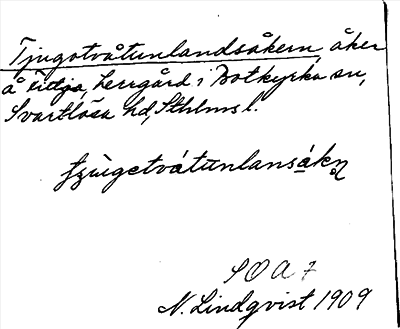 Tjugotvåtunlandsåkern, åker
å Fittja, herrgård i Botkyrka sn,
Svartlösa hd, Sthlms l.
tjùgetvátunlansákn
SOA 7
N. Lindqvist 1909